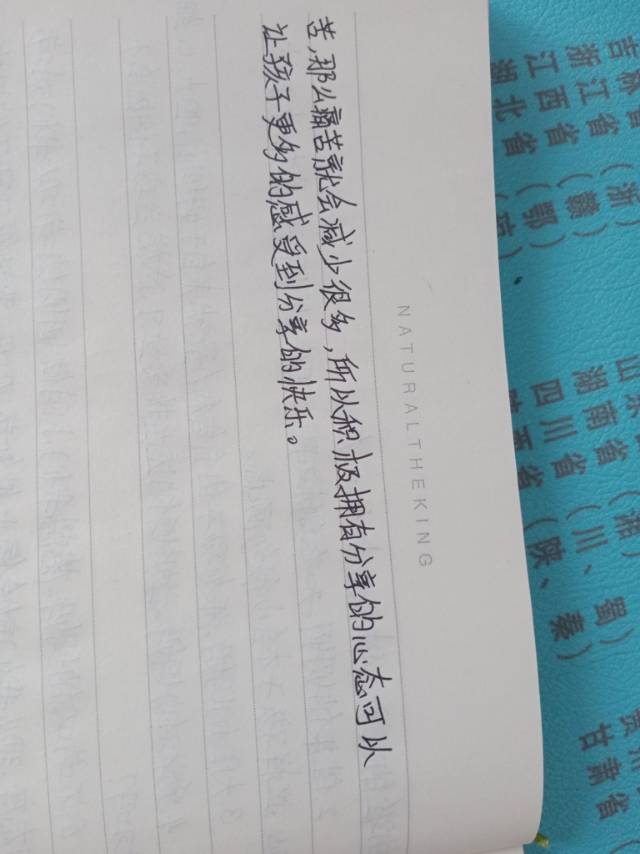 NATURALTHEKING
苦,那么痛苦就会减少很多,所以积极拥有分享的心态可以
让孩子更多的感受到分享的快乐。
吉林省
浙江省(浙)
江西省(赣)
湖北省(鄂)
山东
湖南省(湘)
四川省(川、蜀)
陕、秦)
贵州
甘肃省